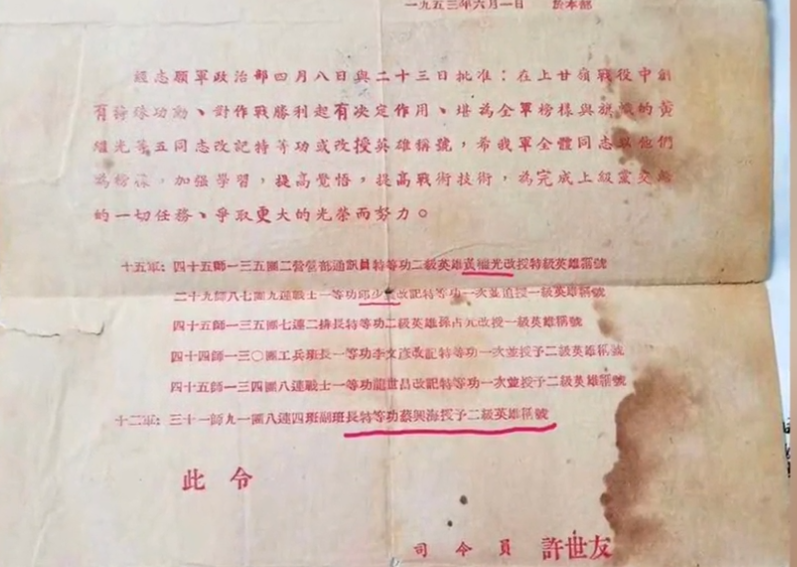 一九五三年六月一日 於本部
經志願軍政治部四月八日與二十三日批准：在上甘嶺戰役中創
有特殊功勳、對作戰勝利起有決定作用、堪為全軍榜樣與旗幟的黃
繼光等五同志改記特等功或改授英雄稱號，希我軍全體同志以他們
為榜樣，加强學習，提高覺悟，提高戰術技術，為完成上級黨交給
的一切任務、爭取更大的光榮而努力。
十五軍：四十五師一三五團二營營部通訊員特等功二級英雄黃繼光改授特級英雄稱號
二十九師八七團九連戰士一等功邱少雲改記特等功一次並追授一級英雄稱號
四十五師一三五團七連二排長特等功二級英雄孫占元改授一級英雄稱號
四十四師一三〇團工兵班長一等功李文彥改記特等功一次並授予二級英雄稱號
四十五師一三四團八連戰士一等功龍世昌改記特等功一次並授予二級英雄稱號
十二軍：三十一師九一團八連四班副班長特等功蔡興海授予二級英雄稱號
此令
司令員 許世友